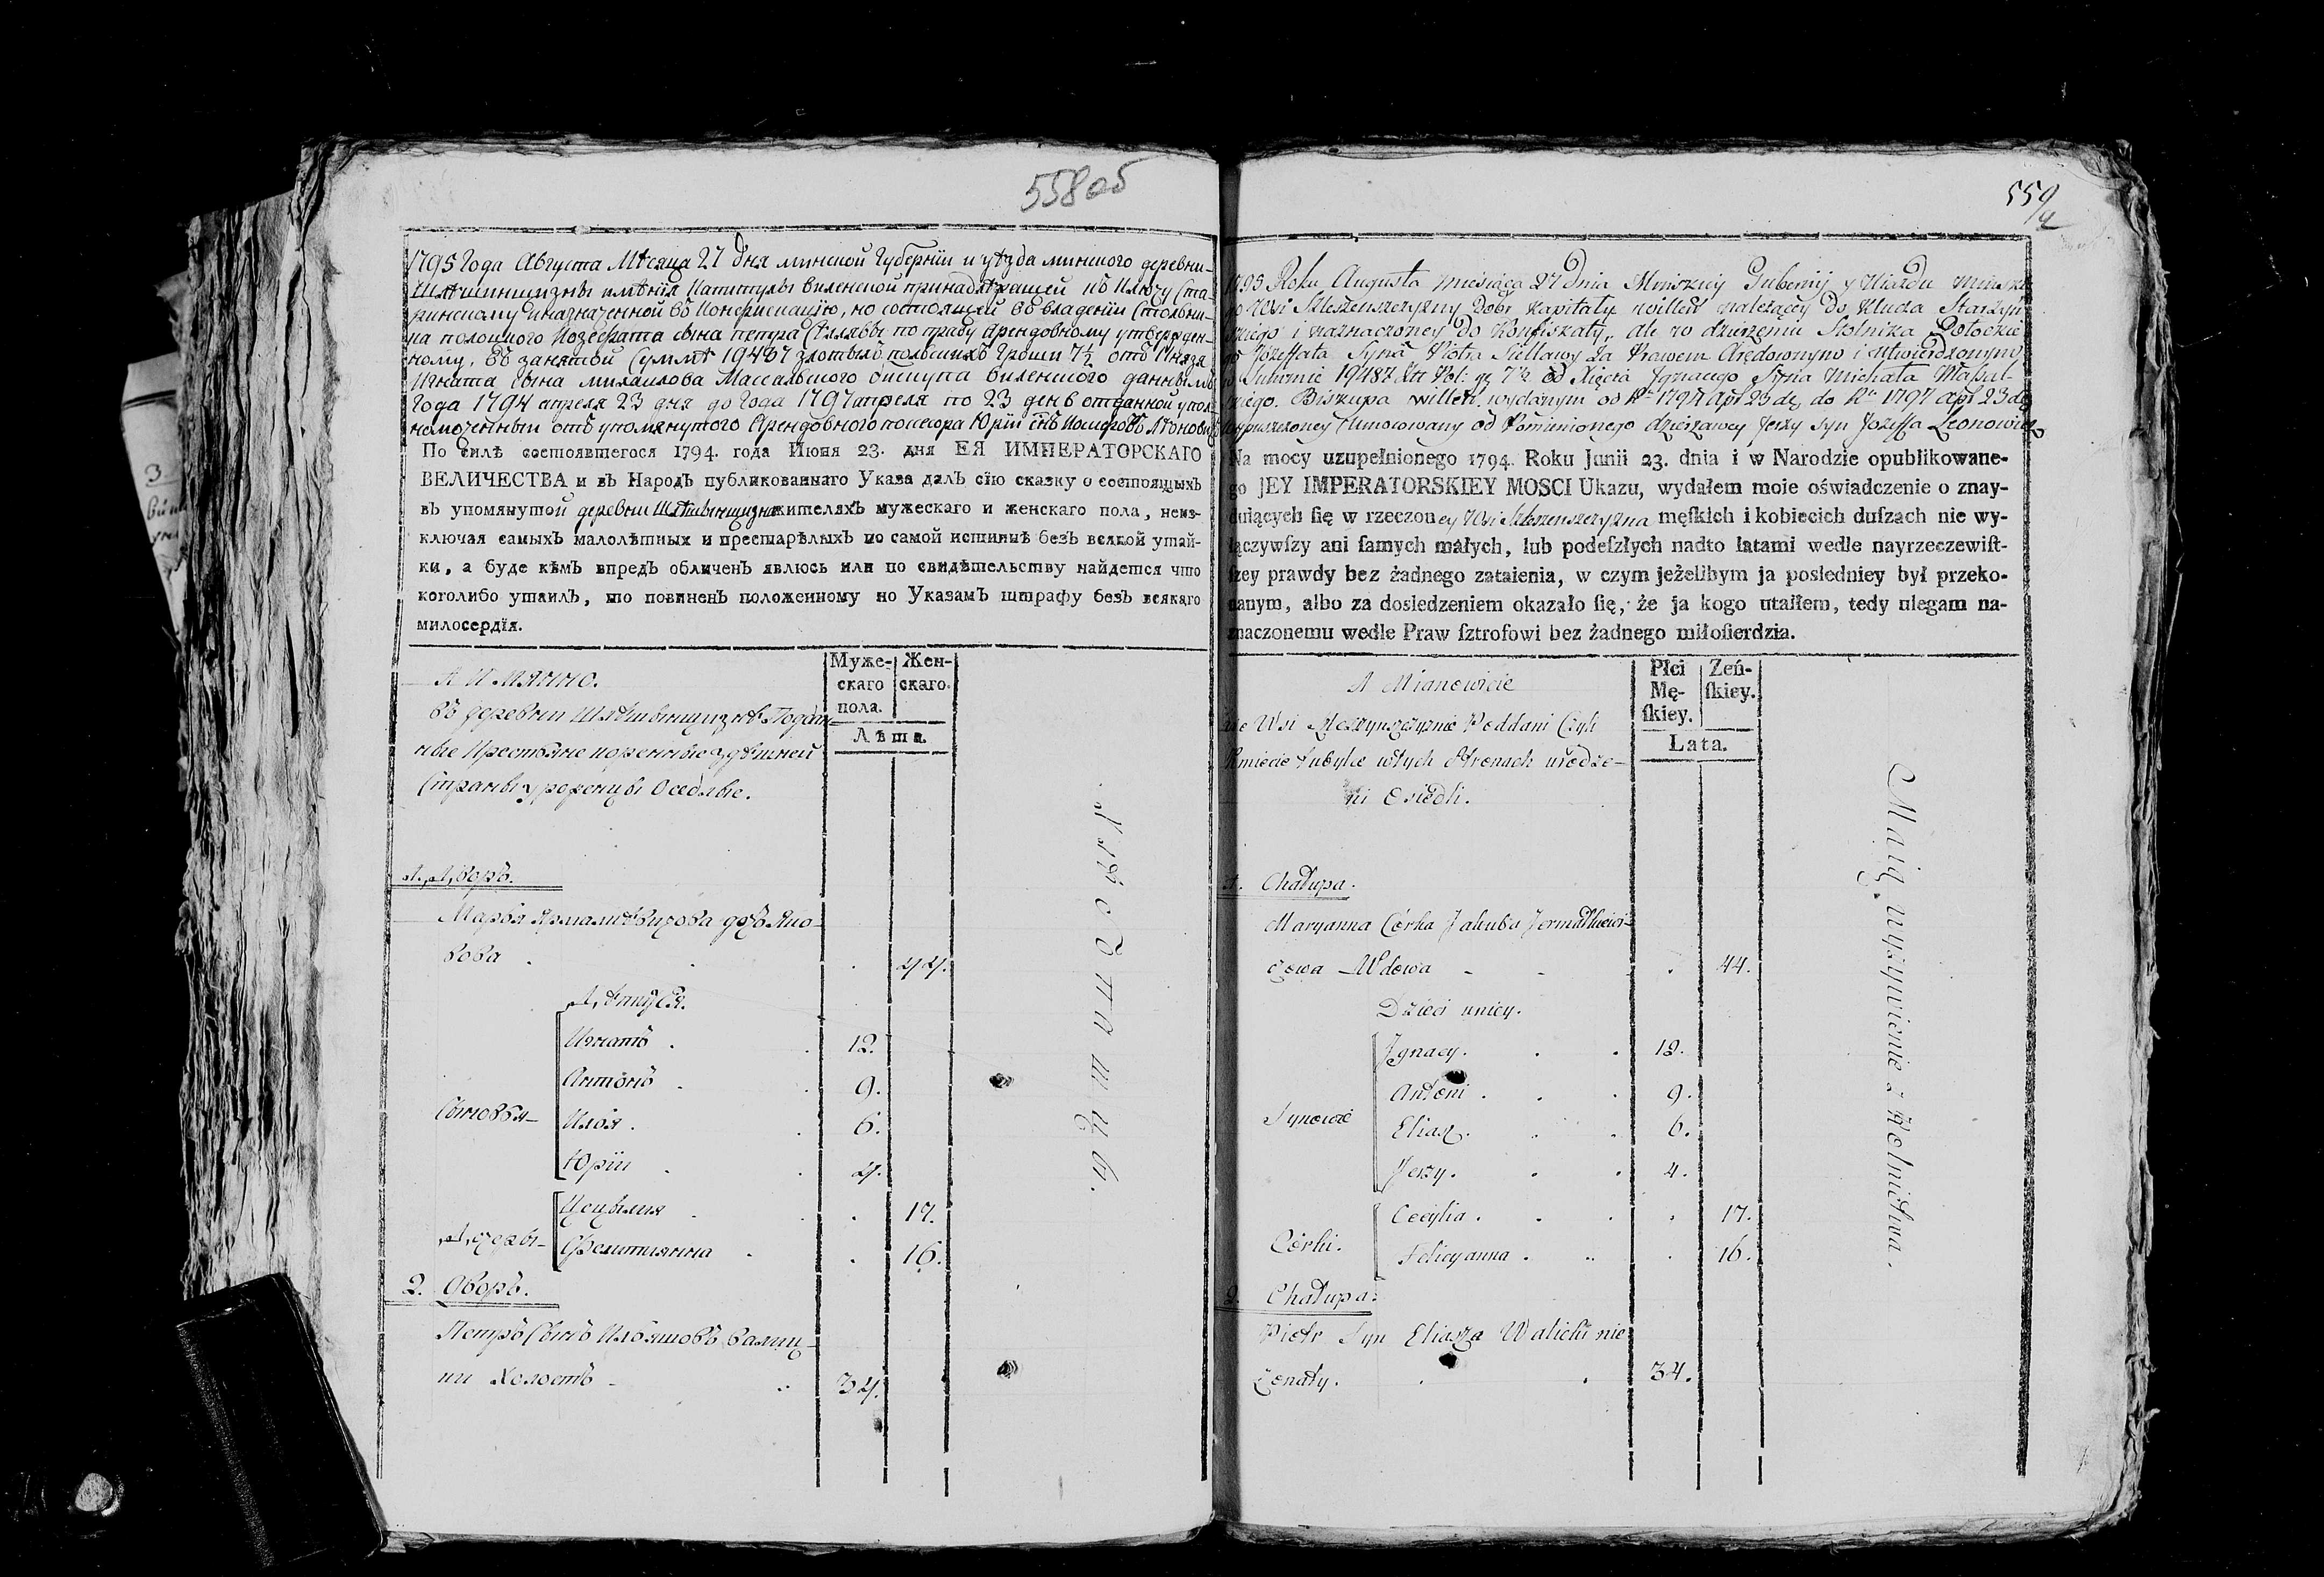 558об
1795 Года Августа Мѣсяца 27 дня минской Губерніи и уѣзда минского деревни
имѣнія Капитулы виленской принадлежащей къ Ключу Ста-
ринскому и назначенной въ Конфискацію, но состоящей въ владеніи Стольни-
ка полоцкого Иозефата сына петра Сѣлявы по праву Арендовному утвержден-
ному, въ занятой Суммѣ 19487 злотыхъ польскихъ Гроши 7½ отъ Князя
Игната сына михаилова Массальского бискупа виленского даннымъ
Года 1794 апреля 23 дня до Года 1797 апреля по 23 день отданной упол-
номоченный отъ упомянутого Арендовного посесора Юрій Сынъ Леонови
По силѣ состоявшегося 1794. года Июня 23. дня ЕЯ ИМПЕРАТОРСКАГО
ВЕЛИЧЕСТВА и въ Народъ публикованнаго Указа далъ сїю сказку о состоящыхъ
въ упомянутой деревни жителяхъ мужескаго и женскаго пола, неиз-
ключая самыхъ малолѣтныхъ и престарѣлыхъ по самой истиннѣ безъ всякой утай-
ки, а буде кѣмъ впредъ обличенъ явлюсь или по свидѣтельству найдется что
коголибо утаилъ, то повиненъ положенному по Указамъ штрафу безъ всякаго
милосердїя.
А Имянно.
Муже-
скаго
пола.
Жен-
скаго.
Лѣта.
въ деревни Подан-
ные Крестьяне коренные здѣшней
Страны уроженцы Оседлые.
1. Дворъ.
Марья Ярмалкевичова дочь Яко-
бова . . . 44.
Дѣти ея.
Сыновья
Игнатъ . . 12.
Антонъ . . 9.
Илья . . 6.
Юріи . . 4.
Дочери
Цецылия . . . 17.
Фелитиянна . . 16.
2. Дворъ.
Петръ Сынъ Ильяшовъ Валиц-
ки Холостъ - .. 34.
559
1795 Roku Augusta miesiąca 27 Dnia Minskiey Gubernij y Uiazdu Minsk
go Wsi Dobr Kapituły willeń należącey do Klucza Starzyń
skiego i naznaczoney do Konfiskaty, ale w dzierżeniu Stolnika Połockie
go Józeffata Syna Piotra Siellawy za Prawem Arędownym i utwierdzonym
w Summie 19487 Złt Pol: gr 7½ od Xięcia Ignacego Syna Michała Massal-
skiego Biskupa willeń. wydanym od Ru 1794 Apl 23 do Ru 1797 Apl 23
wypuszczoney Umocowany od Pomienionego dzierżawcy Jerzy Syn Jozeffa Leonowicz
Na mocy uzupełnionego 1794. Roku Junii 23. dnia i w Narodzie opublikowane-
go JEY IMPERATORSKIEY MOSCI Ukazu, wydałem moie oświadczenie o znay-
duiących ſię w rzeczoney Wsi męſkich i kobiecich duſzach nie wy-
łączywſzy ani ſamych małych, lub podeſzłych nadto latami wedle nayrzeczewiſt-
ſzey prawdy bez żadnego zataienia, w czym jeżelibym ja posledniey był przeko-
nanym, albo za dosledzeniem okazało ſię, że ja kogo utaiłem, tedy ulegam na-
znaczonemu wedle Praw ſztrofowi bez żadnego miłoſierdzia.
A Mianowicie
Płci
Mę-
ſkiey.
Zeń-
ſkiey.
Lata.
we Wsi Poddani Czyli
Kmiecie tubylce wtych Stronach urodze-
ni Osiedli.
1. Chałupa.
Maryanna Córka Jakuba Jermałkiewi-
czowa Wdowa - - . 44.
Dzieci unicy.
Synowie
Ignacy. . . 12.
Antoni . . . 9.
Eliasz. . . 6.
Jerzy. . . 4.
Córki.
Cecylia . . . . 17.
Felicyanna . .. . 16.
2. Chałupa.
Piotr Syn Eliasza Walicki nie
żonaty. . . 34.
Maią wyżywienie z Rolnictwa.